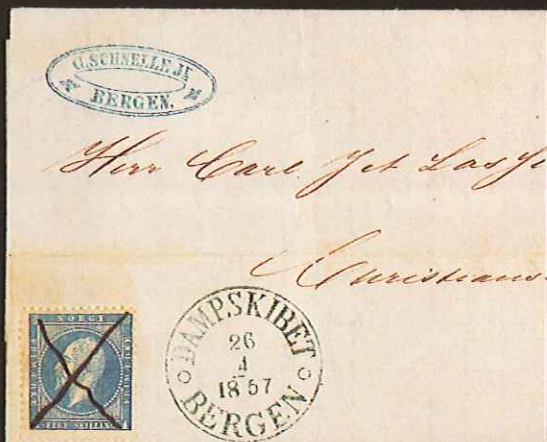 C. SCHNELLE J
BERGEN.
Herr Carl
Christians
NORGE
FIRE SKILLING
DAMPSKIBET
26
4
1857
BERGEN